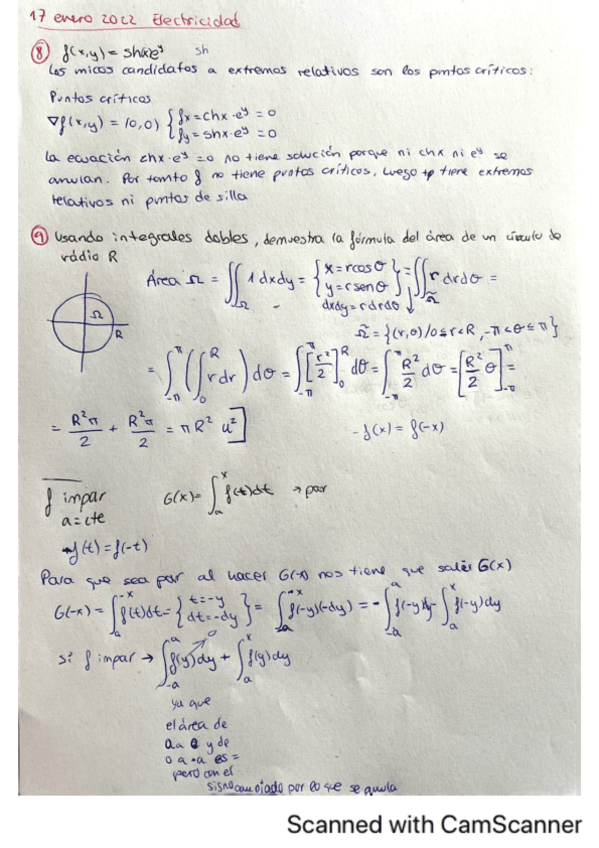 17 enero 2022 Electricidad
⑧ f(x,y) = shx e^y sh
Los únicos candidatos a extremos relativos son los puntos críticos:
Puntos críticos
∇f(x,y) = (0,0) { fx = chx · e^y = 0
fy = shx · e^y = 0
La ecuación chx · e^y = 0 no tiene solución porque ni chx ni e^y se
anulan. Por tanto f no tiene puntos críticos, luego tp tiene extremos
relativos ni puntos de silla
⑨ Usando integrales dobles, demuestra la fórmula del área de un círculo de
rádio R
Ω
R
Área Ω = ∬_Ω 1 dxdy = { x = r cos θ
y = r sen θ } = ∬_Ω̃ r drdθ =
dxdy = r dr dθ
Ω̃ = {(r,θ) / 0 ≤ r < R, -π < θ ≤ π}
= ∫_{-π}^{π} ( ∫_0^R r dr ) dθ = ∫_{-π}^{π} [r²/2]_0^R dθ = ∫_{-π}^{π} R²/2 dθ = [R²/2 θ]_{-π}^{π} =
= R²π/2 + R²π/2 = πR² u²]
-f(x) = f(-x)
f impar G(x) = ∫_a^x f(t)dt → par
a = cte
-f(t) = f(-t)
Para que sea par al hacer G(-x) nos tiene que salir G(x)
G(-x) = ∫_a^{-x} f(t)dt = { t = -y
dt = -dy } = ∫_{-a}^{x} f(-y)(-dy) = - ∫_{-a}^{a} f(-y)dy - ∫_a^x f(-y)dy
0
si f impar → ∫_{-a}^{a} f(y)dy + ∫_a^x f(y)dy
ya que
el área de
a a 0 y de
0 a -a es =
pero con el
signo cambiado por lo que se anula
Scanned with CamScanner